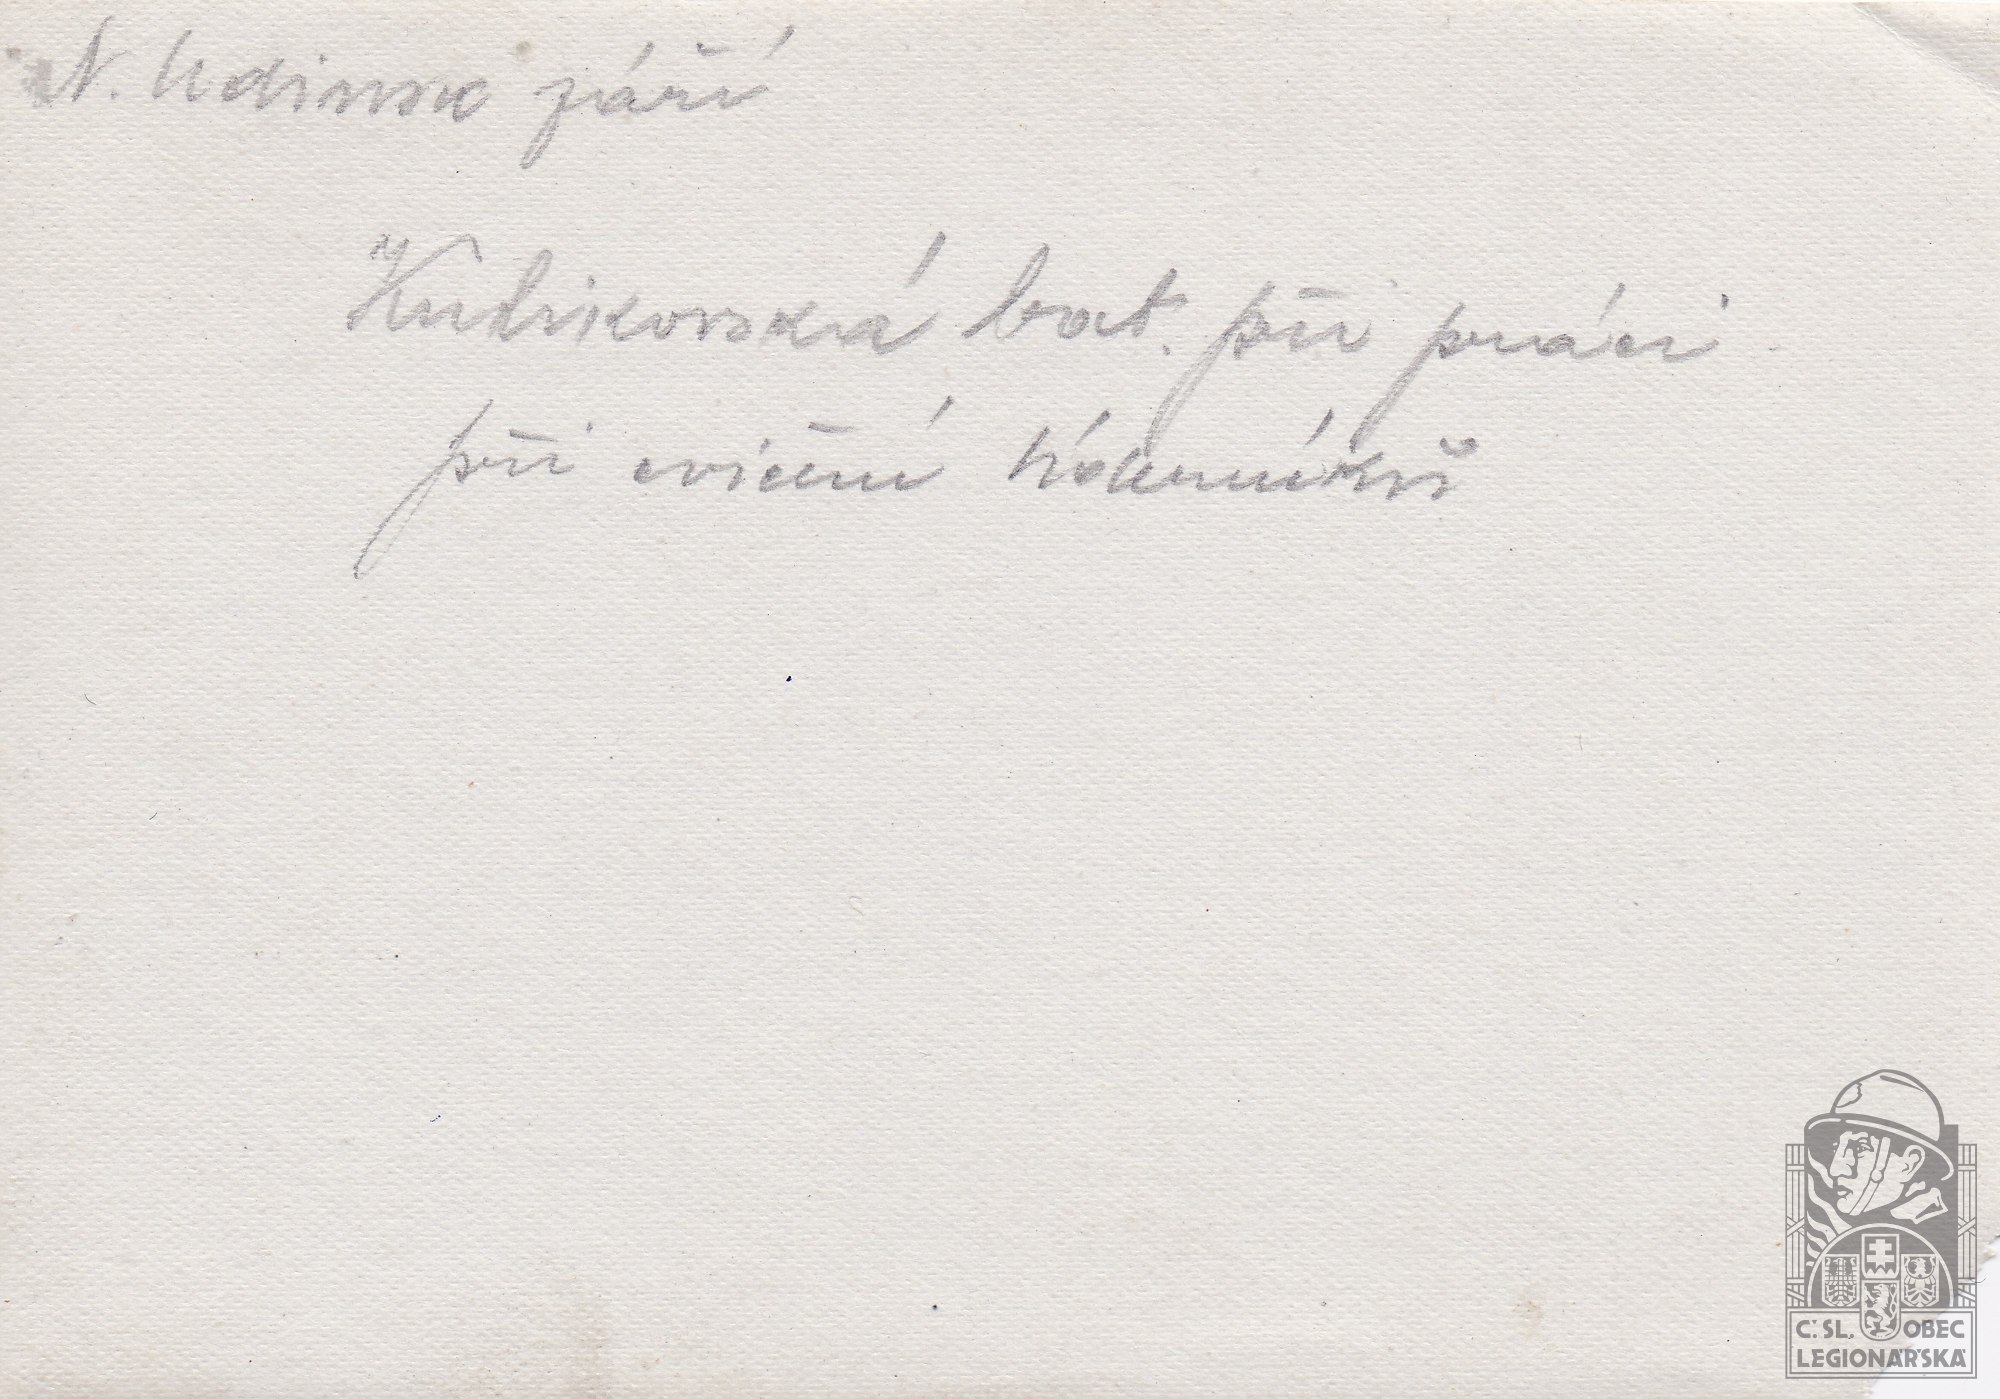 N. Udinsk září
Kulikovská bat. při práci
při cvičení úderníků
Č.SL. OBEC
LEGIONÁŘSKÁ